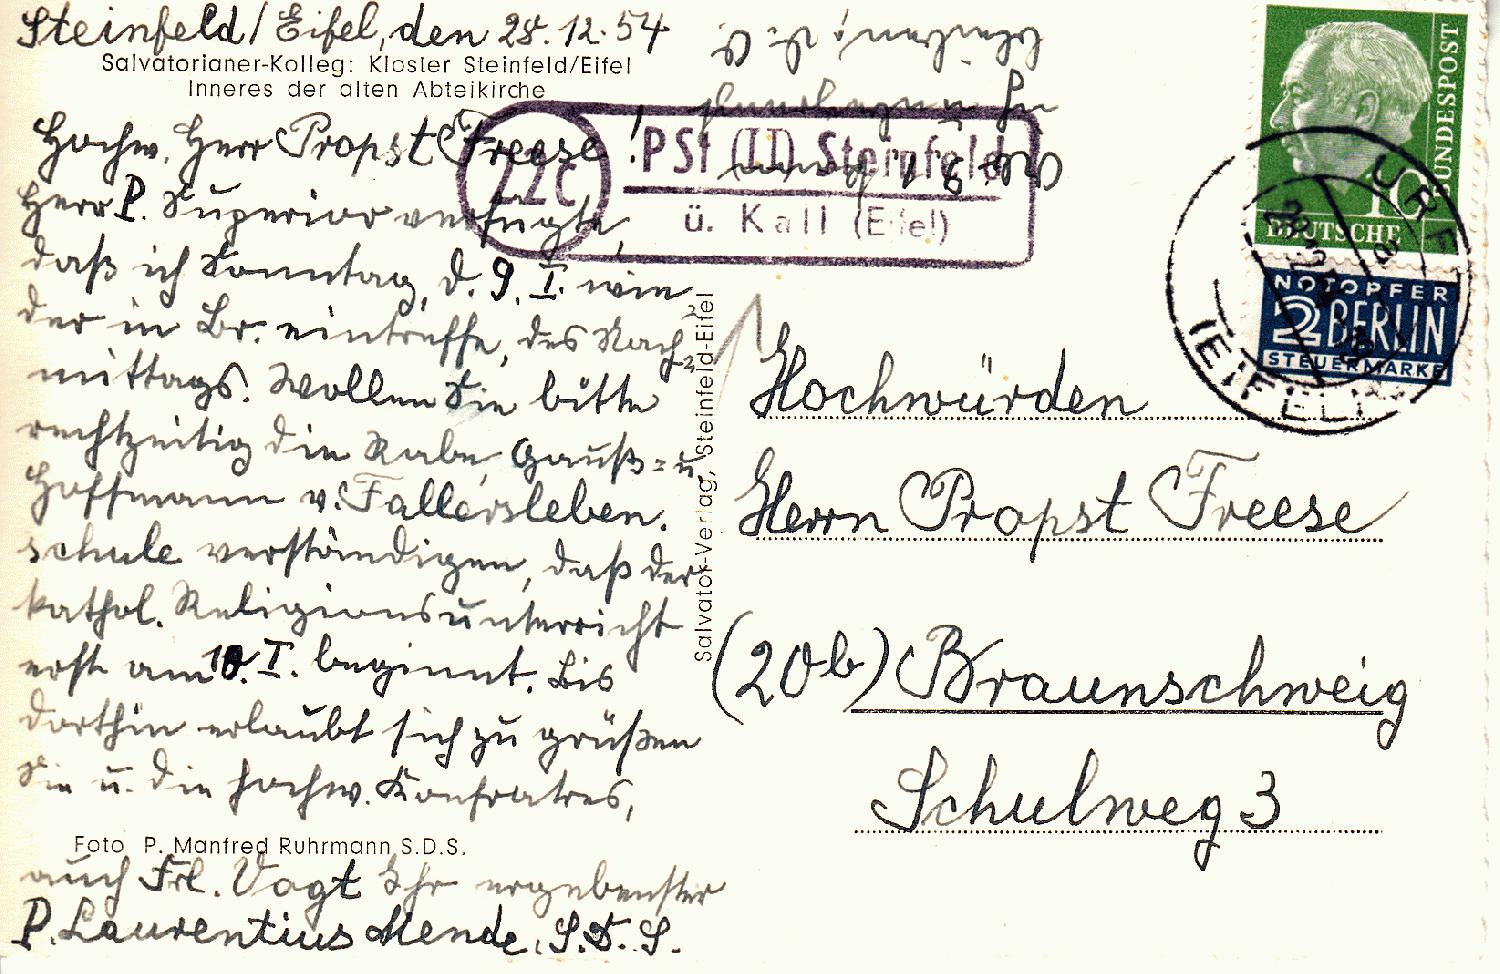 Steinfeld/Eifel, den 28.12.54
Salvatorianer-Kolleg: Kloster Steinfeld/Eifel
Inneres der alten Abteikirche
Hochw. Herr Propst Freese!
Herr P. Superior verfügte,
daß ich Sonntag, d. 9. I. wie
der in Br. eintreffe, des Nach=
mittags. Wollen Sie bitte
rechtzeitig die Raabe, Gauß= u.
Hoffmann v. Fallersleben.
schule verständigen, daß der
kathol. Religionsunterricht
erst am 10. I. beginnt. Bis
dorthin erlaubt sich zu grüßen
Sie u. die hochw. Konfratres,
Foto P. Manfred Ruhrmann S.D.S.
auch Frl. Vagt Ihr ergebenster
P. Laurentius Mende, S.D.S.
Salvator-Verlag, Steinfeld-Eifel
22c
PSt (II) Steinfeld
ü. Kall (Eifel)
DEUTSCHE
BUNDESPOST
10
NOTOPFER
2 BERLIN
STEUERMARKE
URFT
(EIFEL)
Hochwürden
Herrn Propst Freese
(20b) Braunschweig
Schulweg 3